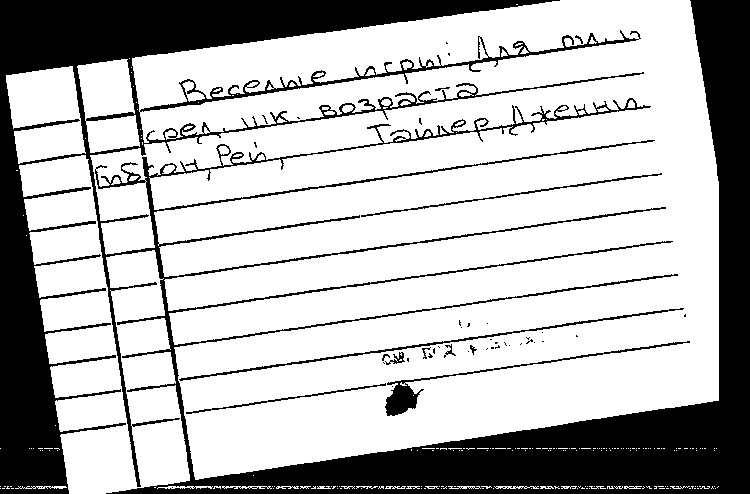 Веселые игры: Для мл. и
сред. шк. возраста
Гибсон, Рей, Тайлер, Дженни
см.